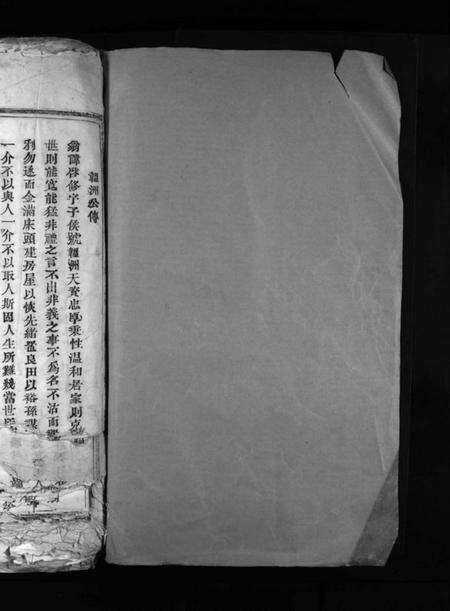 翰洲公傳
翁諱啓修字子侯號翰洲天資忠厚秉性溫和居家則克
世則能寬能猛非禮之言不出非義之事不為名不沽而
利勿逐而金滿床頭建房屋以恢先緒置良田以裕孫謀
一介不以與人一介不以取人斯固人生所難幾當世所